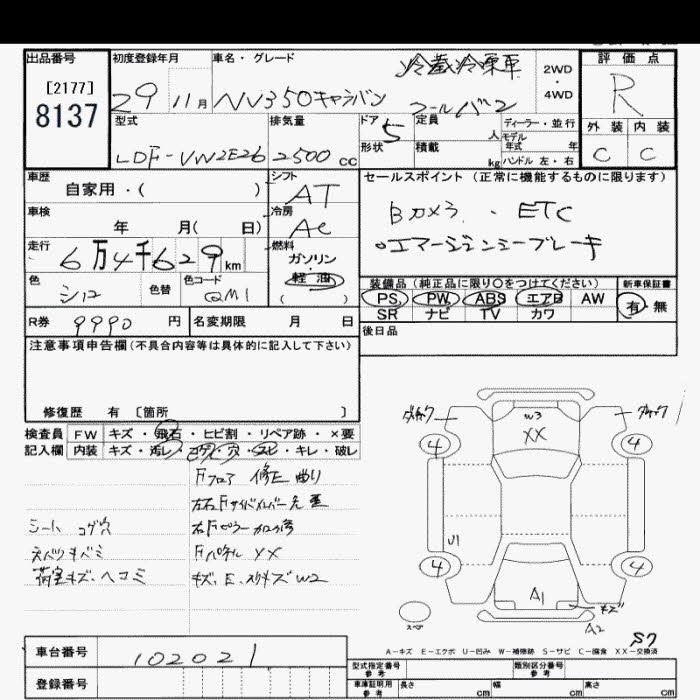 出品番号
[2177]
8137
初度登録年月
29 11月
車名・グレード
NV350キャラバン
冷蔵冷凍車
コールドバン
2WD
・
4WD
評価点
R
外装 内装
C C
型式
LDF-VW2E26
排気量
2500 cc
ドア 5
形状
定員
人
積載
kg
ディーラー・並行
モデル
年式 年
ハンドル 左・右
車歴
自家用・( )
シフト
AT
車検
年 月( 日)
冷房
AC
走行
6万4千629km
燃料
ガソリン
・
軽油
( )
色
シロ
色替
色コード
QM1
セールスポイント (正常に機能するものに限ります)
Bカメラ ・ ETC
・エマージェンシーブレーキ
装備品 (純正品に限り〇をつけてください)
新車保証書
PS PW ABS エアB AW
SR ナビ TV カワ
有・無
後日品
R券 9990 円
名変期限 月 日
注意事項申告欄(不具合内容等は具体的に記入して下さい)
修復歴 有 〔箇所 〕
検査員
記入欄
FW キズ・飛石・ヒビ割・リペア跡・×要
内装 キズ・汚レ・コゲ・穴・スレ・キレ・破レ
Fフロア 修E 曲り
左右Fサイドメンバー先
シート コゲ穴
右Fピラー
Fパネル XX
荷室キズ、ヘコミ
キズ、E、スリキズW2
W3
XX
4
4
4
4
U1
A1
キズ
A2
S7
スペア
A-キズ E-エクボ U-凹み W-補修跡 S-サビ C-腐食 XX-交換済
車台番号
102021
登録番号
型式指定番号
参考
類別区分番号
参考
車庫証明用
参考
長さ cm
幅 cm
高さ cm